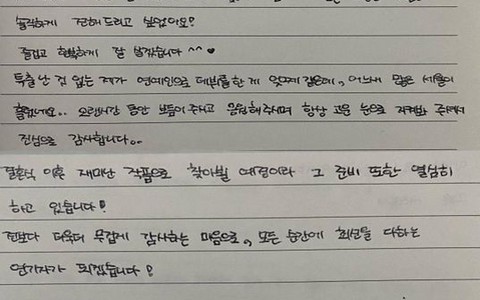 솔직하게 전해드리고 싶었어요!
즐겁고 행복하게 잘 살겠습니다 ^^ ♥
특출난 것 없는 제가 연예인으로 데뷔를 한 게 엊그제 같은데, 어느새 많은 세월이
흘렀네요.. 오랜시간 동안 보듬어 주시고 응원해주시며 항상 고운 눈으로 지켜봐 주셔서
진심으로 감사합니다..
결혼식 이후 재미난 작품으로 찾아뵐 예정이라 그 준비 또한 열심히
하고 있습니다!
전보다 더욱더 무겁게 감사하는 마음으로, 모든 순간에 최선을 다하는
연기자가 되겠습니다!